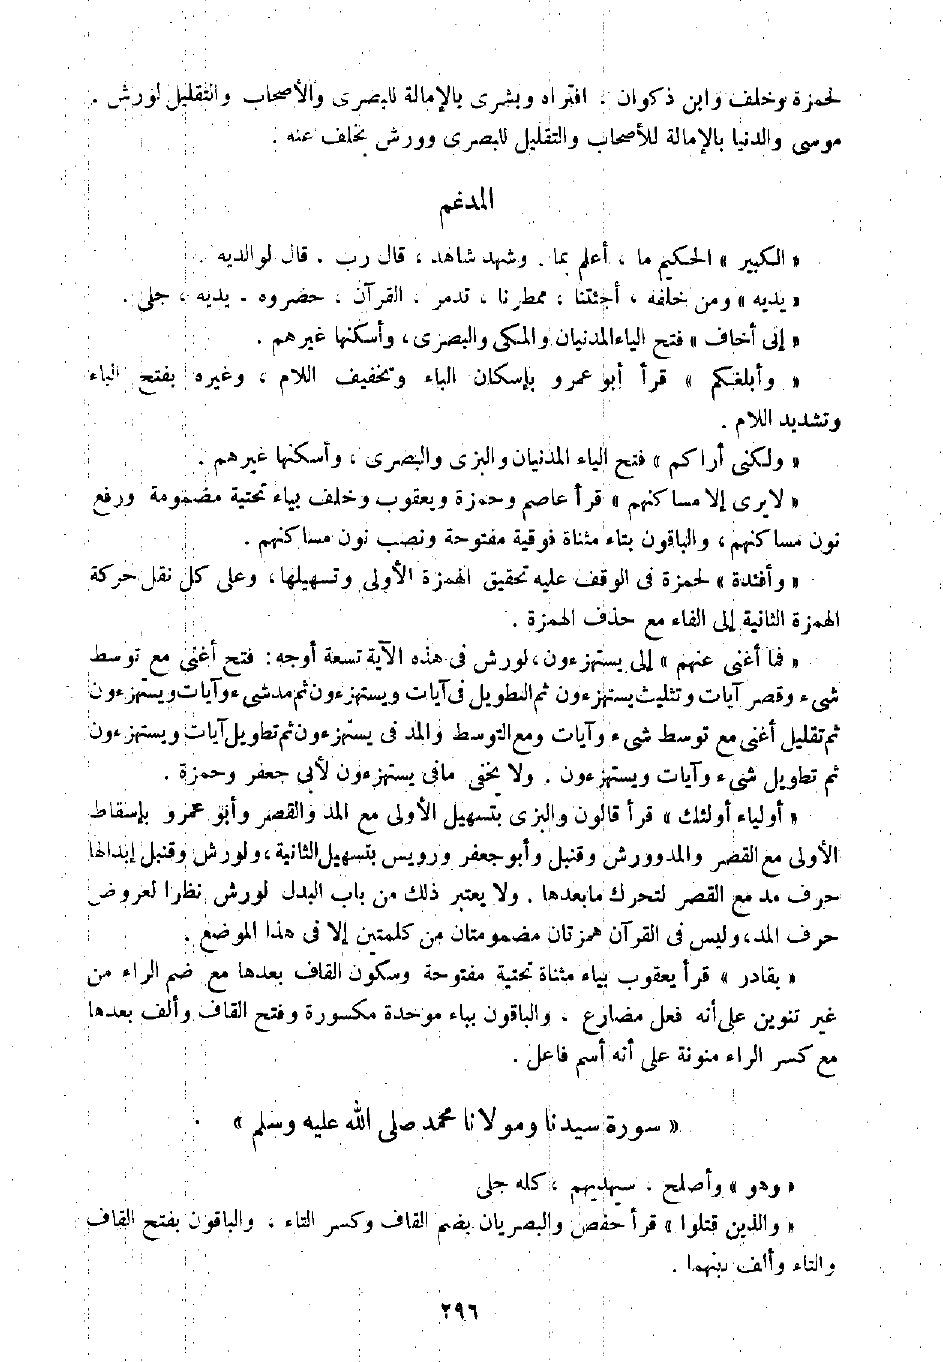 لحمزة وخلف وابن ذكوان . افتراه وبشرى بالإمالة للبصرى والأصحاب والتقليل لورش .
موسى والدنيا بالإمالة للأصحاب والتقليل للبصرى وورش بخلف عنه .
المدغم
« الكبير » الحكيم ما ، أعلم بما . وشهد شاهد ، قال رب . قال لوالديه .
« يديه » ومن خلفه ، أجئتنا ، ممطرنا ، تدمر . القرآن . حضروه . يديه ، جلى .
« إنى أخاف » فتح الياء المدنيان والمكى والبصرى ، وأسكنها غيرهم .
« وأبلغكم » قرأ أبو عمرو بإسكان الباء وتخفيف اللام ، وغيره بفتح الباء
وتشديد اللام .
« ولكنى أراكم » فتح الياء المدنيان والبزى والبصرى ، وأسكنها غيرهم .
« لا يرى إلا مساكنهم » قرأ عاصم وحمزة ويعقوب وخلف بياء تحتية مضمومة ورفع
نون مساكنهم ، والباقون بتاء مثناة فوقية مفتوحة ونصب نون مساكنهم .
« وأفئدة » لحمزة فى الوقف عليه تحقيق الهمزة الأولى وتسهيلها ، وعلى كل نقل حركة
الهمزة الثانية إلى الفاء مع حذف الهمزة .
« فما أغنى عنهم » إلى يستهزءون ، لورش فى هذه الآية تسعة أوجه : فتح أغنى مع توسط
شىء وقصر آيات وتثليث يستهزءون ثم التطويل فى آيات ويستهزءون ثم مد شىء وآيات ويستهزءون
ثم تقليل أغنى مع توسط شىء وآيات ومع التوسط والمد فى يستهزءون ثم تطويل آيات ويستهزءون
ثم تطويل شىء وآيات ويستهزءون . ولا يخفى مافى يستهزءون لأبى جعفر وحمزة .
« أولياء أولئك » قرأ قالون والبزى بتسهيل الأولى مع المد والقصر وأبو عمرو بإسقاط
الأولى مع القصر والمد وورش وقنبل وأبو جعفر ورويس بتسهيل الثانية ، ولورش وقنبل إبدالها
حرف مد مع القصر لتحرك مابعدها . ولا يعتبر ذلك من باب البدل لورش نظرا لعروض
حرف المد ، وليس فى القرآن همزتان مضمومتان من كلمتين إلا فى هذا الموضع .
« بقادر » قرأ يعقوب بياء مثناة تحتية مفتوحة وسكون القاف بعدها مع ضم الراء من
غير تنوين على أنه فعل مضارع . والباقون بباء موحدة مكسورة وفتح القاف وألف بعدها
مع كسر الراء منونة على أنه أسم فاعل .
« سورة سيدنا ومولانا محمد صلى الله عليه وسلم »
« وهو » وأصلح . سيهديهم ، كله جلى
« والذين قتلوا » قرأ حفص والبصريان بضم القاف وكسر التاء ، والباقون بفتح القاف
والتاء وألف بينهما .
٢٩٦